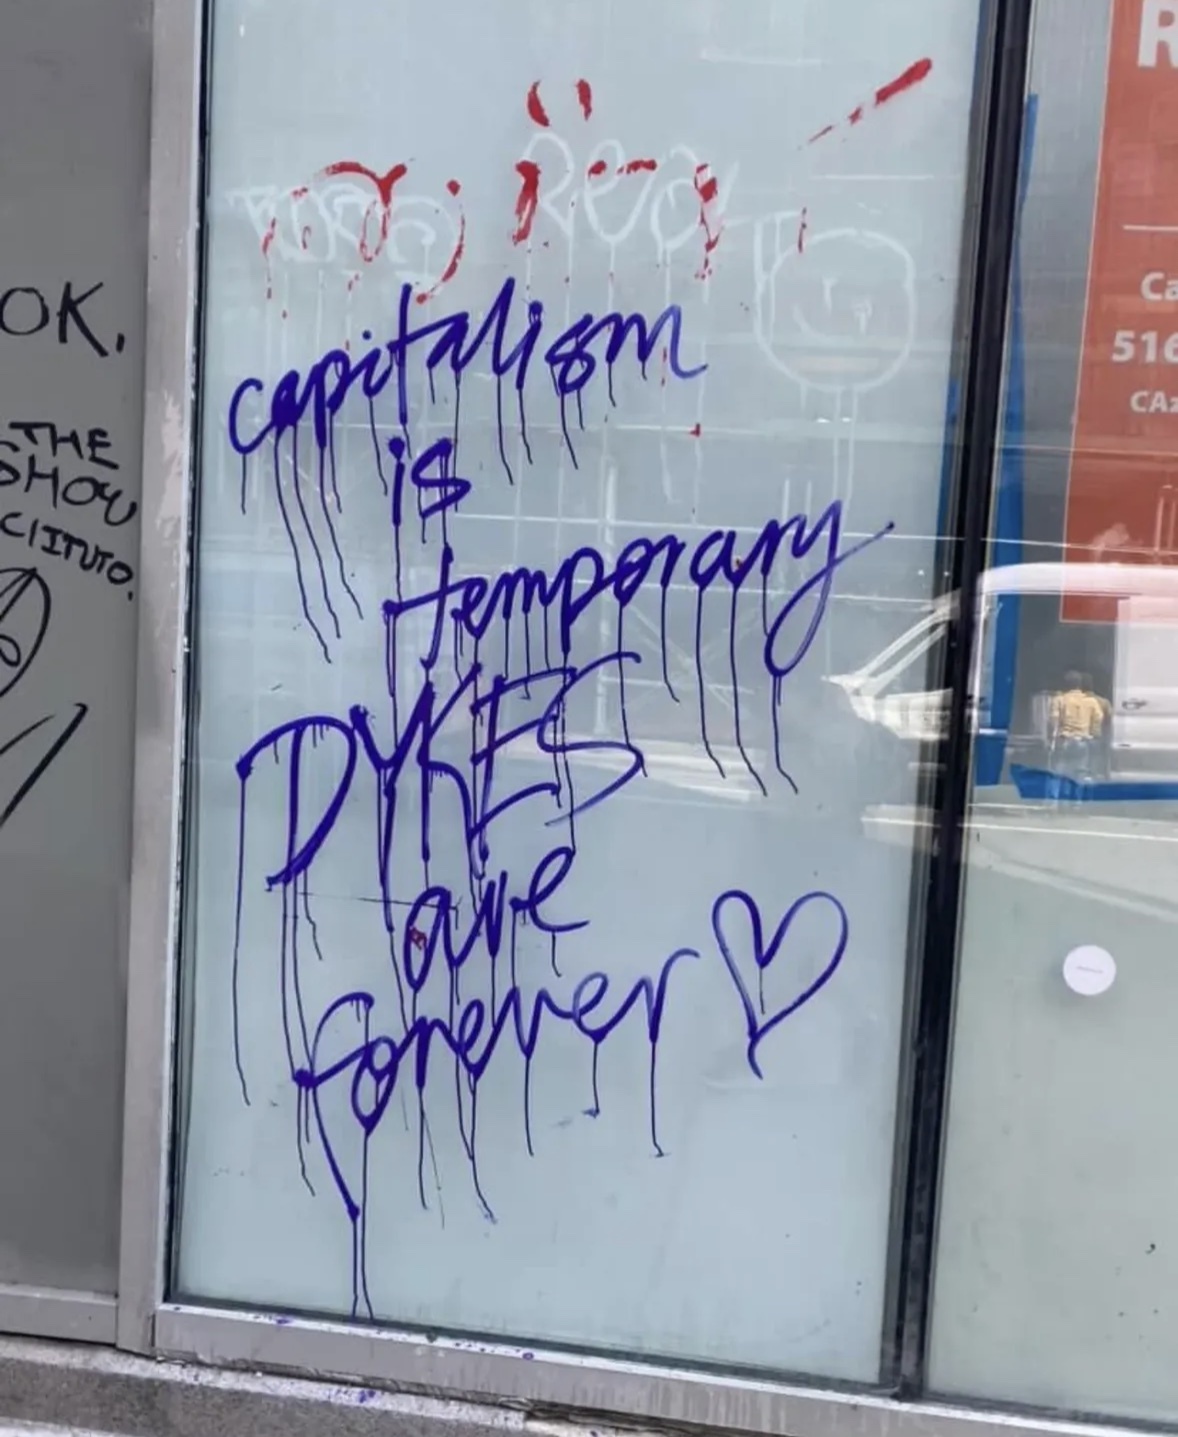 OK,
THE
SHOW
capitalism
is
temporary
DYKES
are
forever ♡
R
Ca
516
CAz